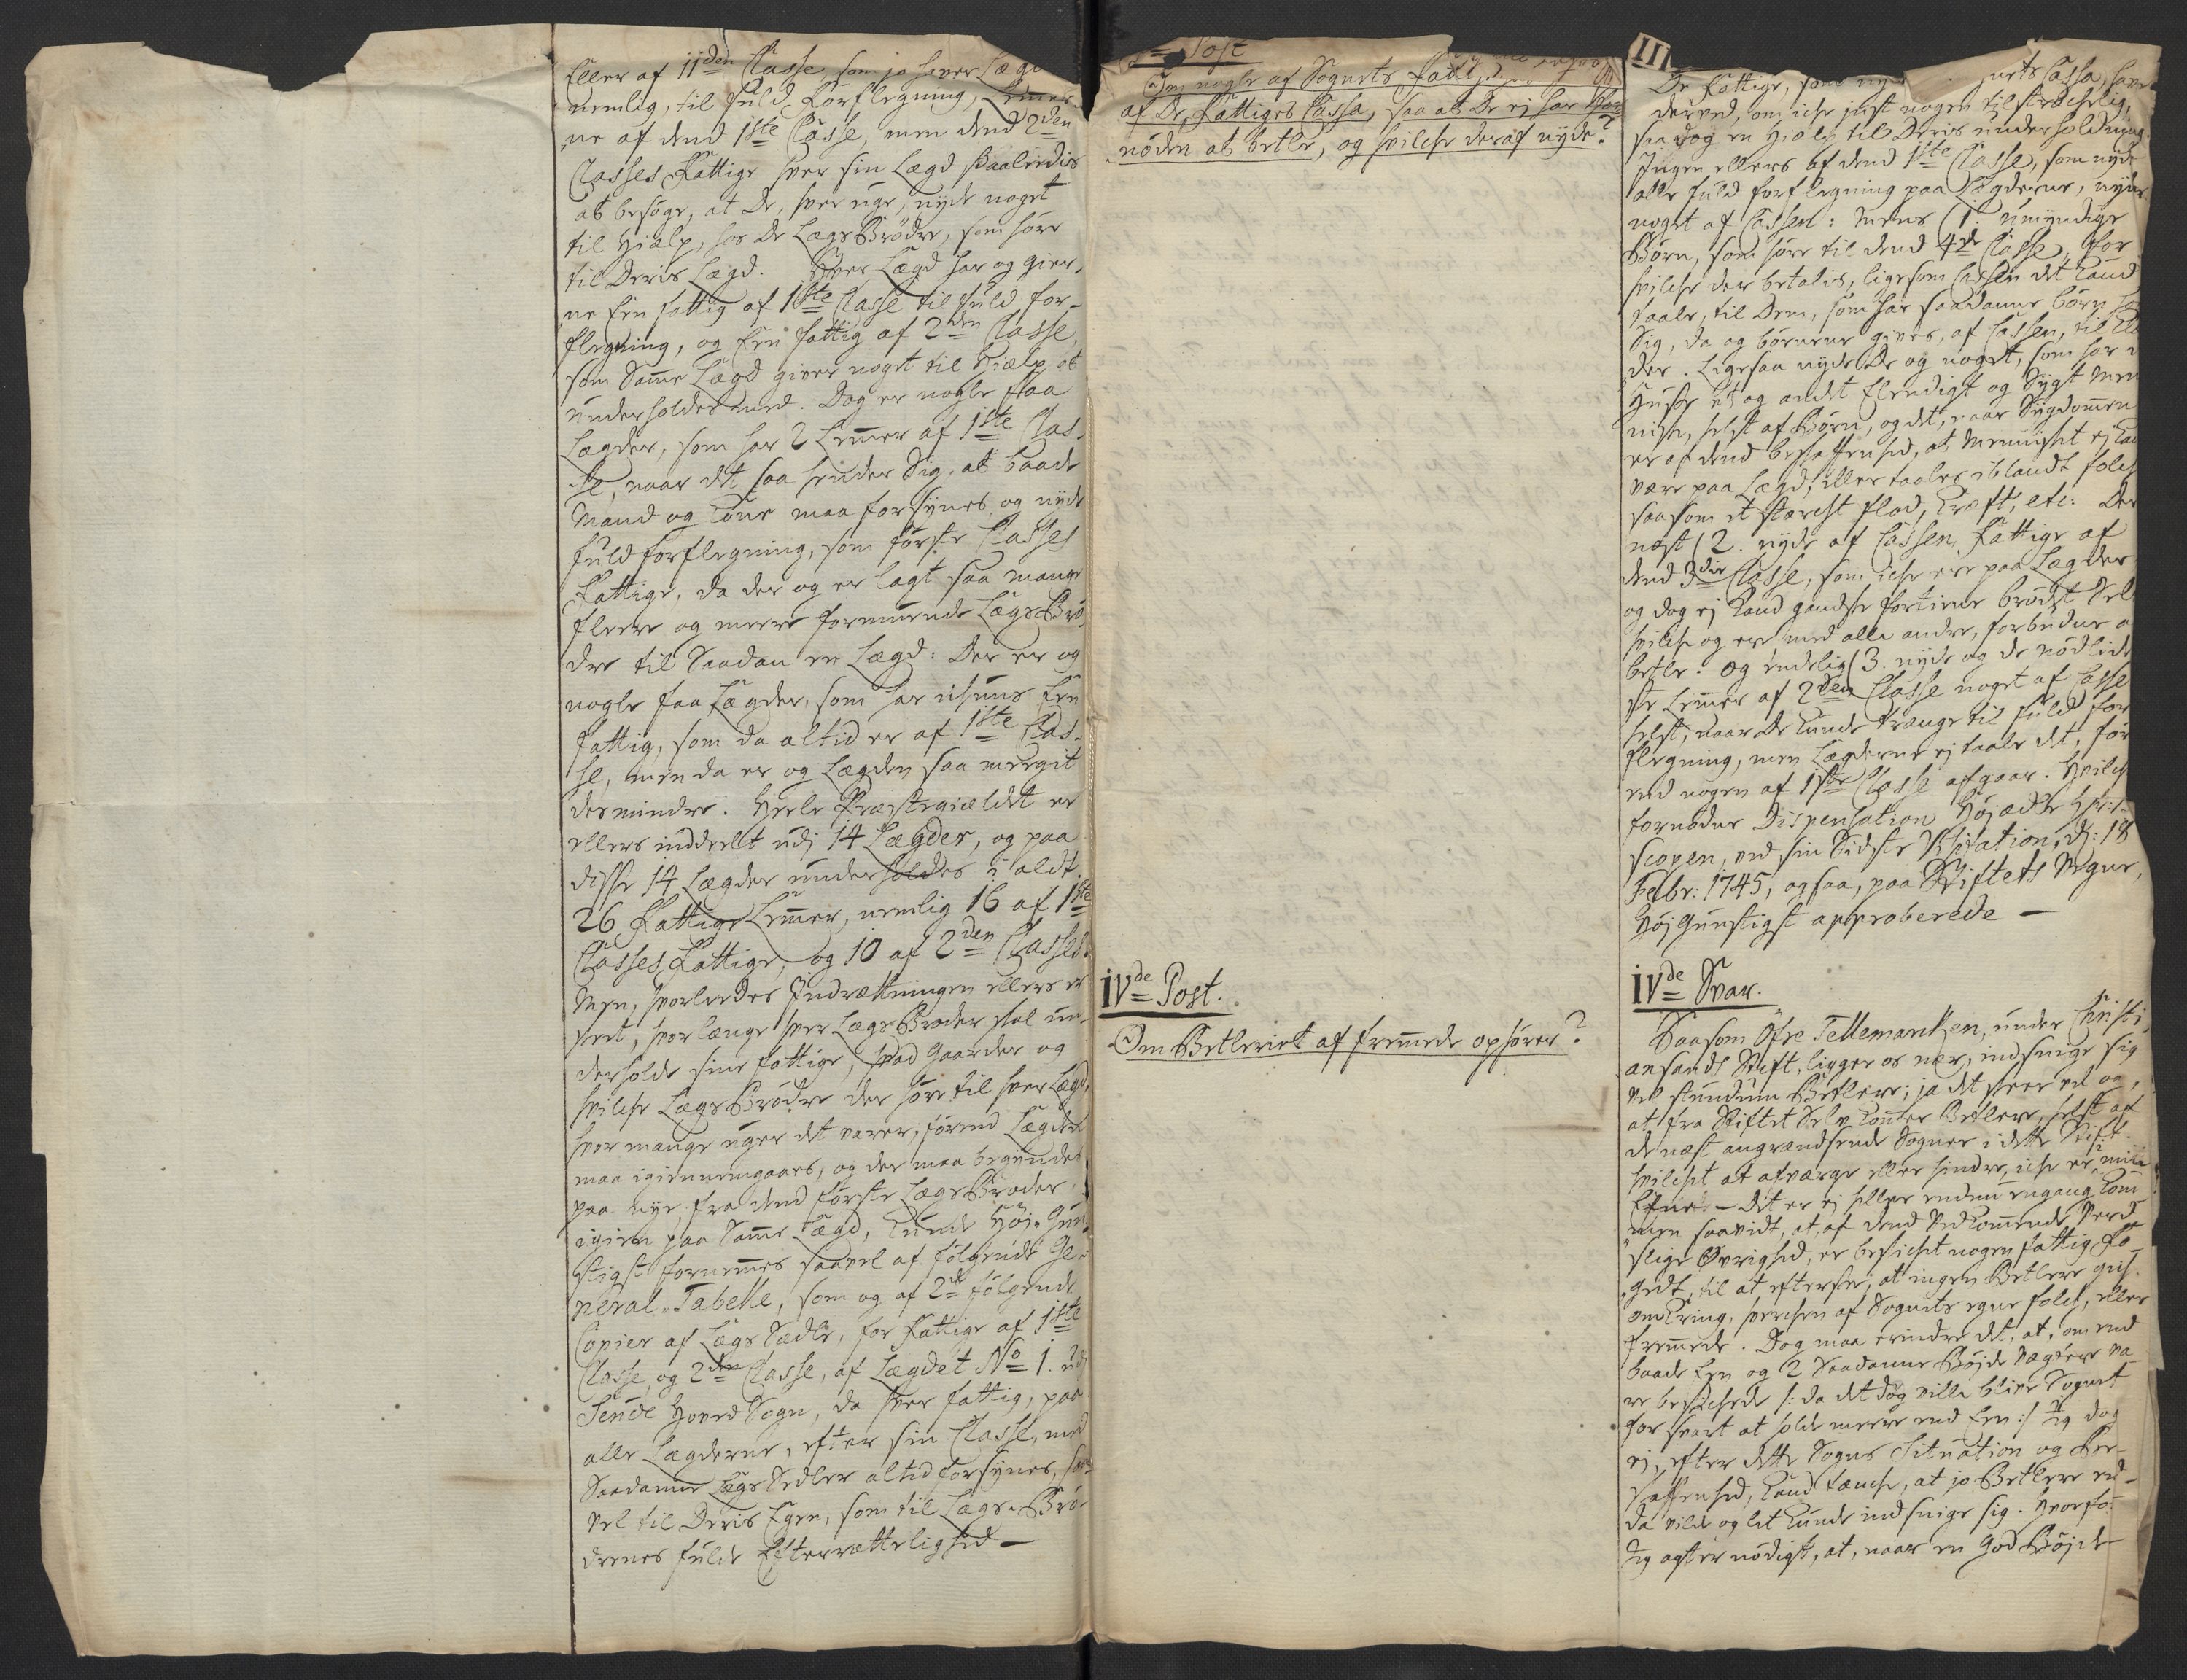 Eller af 11den Classe, som jo hver Lægd
nemlig, til fuld Forflegning, Lemmer¬
ne af dend 1ste Classe, men dend 2den
Classes Fattige hver sin Lægd saaledis
at besøge, at De, hver uge, nyde noget
til Hielp, hos De LægsBrødre, som høre
til Deris Lægd. Hver Lægd har og gier¬
ne Een fattig af 1ste Classe til fuld for¬
flegning, og Een fattig af 2den Classe,
som Samme Lægd giver noget til Hielp at
underholdes med. Dog er nogle faa
Lægder, som har 2 Lemmer af 1ste Clas¬
se, naar det saa hender Sig, at baade
Mand og Kone maa forsynes og nyde
fuld forflegning, som første Classes
Fattige, da der og er lagt saa mange
fleere og meere formuende LægsBrø¬
dre til Saadan en Lægd: Der er og
nogle faa Lægder, som har ickuns Een
fattig, som da altid er af 1ste Clas¬
se, men da er og Lægden saa meegit
des mindre. Heele Præstegieldet er
ellers inddeelt udj 14 Lægder, og paa
disse 14 Lægder underholdes i aldt
26 Fattige Lemmer, nemlig 16 af 1ste
Classes Fattige, og 10 af 2den Classes.
Men, hvorledes Indrættningen ellers er
skeet, hvorlænge hver LægsBroder skal un¬
derholde sine fattige, hvad Gaarder og
hvilche LægsBrødre der høre til hver Lægd,
hvor mange uger det varer, førend Lægden
maa igiennemgaaes, og der maa begyndes
paa nye, fra dend første LægsBroder,
igien paa Samme Lægd, kunde Høj-Gun¬
stigst fornemmes saavel af følgende Ge¬
neral-Tabelle, som og af 2de følgende
Copier af LægsSædle, for Fattige af 1ste
Classe, og 2den Classe, af Lægdet No 1. udj
Hoved Sogn, da hver fattig, paa
alle Lægderne, efter sin Classe, med
Saadanne LægsSedler altid forsynes, saa
vel til Deris Egen, som til Lægs-Brø¬
drenes fulde Efterrættelighed —
Post
Om nogle af Sognets
af De Fattiges Cassa, saa at De ej har
nøden at betle, og hvilche deraf nyde?
IVde Post.
Om Betleriet af fremmede ophører?
III
De Fattige, som
derved, om iche just nogen tilstrechelig,
saa dog en Hielp til Deris underholdning.
Ingen ellers af dend 1ste Classe, som nyde
alle fuld forflegning paa Lægderne, nyder
noget af Cassen: Mens (1. umyndige
Børn, som høre til dend 4de Classe, for
hvilche der betales, ligesom Cassen det kand
taale, til Dem, som har saadanne børn hos
Sig, da og børnene gives, af Cassen, til
der. Ligesaa nyde De og noget, som har i
Huse et og andet Elendigt og Sygt Men
niske, helst af Børn, og det, naar Sygdommen
er af dend beskaffenhed, at Mennisket ej kand
være paa Lægd, eller taales iblandt folch
saasom et stercht flod, Kræft, etc: Der
næst (2. nyde af Cassen, Fattige af
dend 3die Classe, som iche ere paa Lægder
og dog ej kand gandske fortiene brødet Sel
hvilche og ere med alle andre, forbudne a
betle. Og endelig (3. nyde og de nødlide
ste Lemmer af 2den Classe noget af Casse
helst, naar De kunde trænge til fuld for
flegning, men Lægderne ej taale det, før
end nogen af 1ste Classe afgaar. Hvilch
fornødne Dispensation Højædle Hr:
scopen, ved sin Sidste Visitation, d: 18
Febr: 1745, ogsaa, paa Stiftets Vegne,
Høj Gunstigst approberede —
IVde Svar.
Saasom Øfre Tellemarcken, under Christi¬
ansands Stift, ligger os nær, indsnige sig
vel stundum Betlere; ja det skeer vel og,
at fra Stiftet Selv kommer Betlere, helst af
de næst angrændsende Sogner i dette Stift.
hvilchet at afværge eller hindre, iche er min
Efne. — Det er ej heller endnu engang kom¬
men saavidt, at, af dend Vedkommende Verd¬
slige Øvrighed, er beskichet nogen fattig Fo
gedt, til at efterse, at ingen Betlere gik
omkring, hverchen af Sognets egne folch, eller
fremmede. Dog maa erindre det, at, om end
baade Een og 2 Saadanne Bøjde Vægtere va
re beskichede /: da det dog ville blive Sognet
for svart at holde meere end Een :/ Jeg dog
ej, efter dette Sogns Situation og Be¬
skaffenhed, kand tænche, at jo Betlere end
da vilde og let kunde indsnige sig. Hvorfor
Jeg agter nødigst, at, naar en god Bøjde